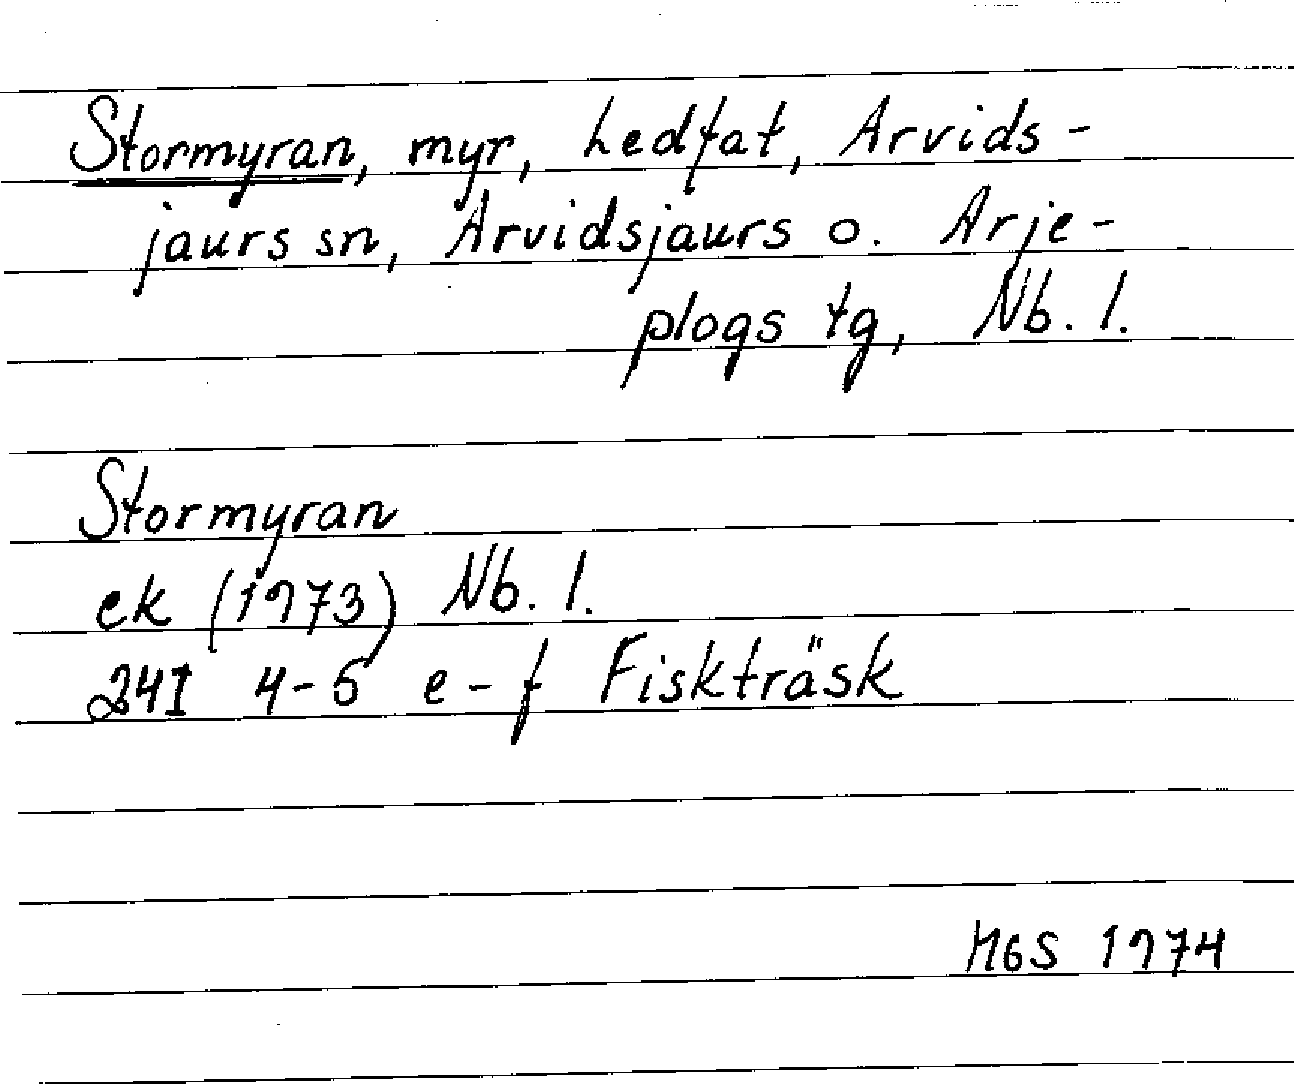 Stormyran, myr, Ledfat, Arvids-
jaurs sn, Arvidsjaurs o. Arje-
plogs tg, Nb. l.
Stormyran
ek (1973) Nb. l.
24I 4-5 e-f Fiskträsk
MGS 1974